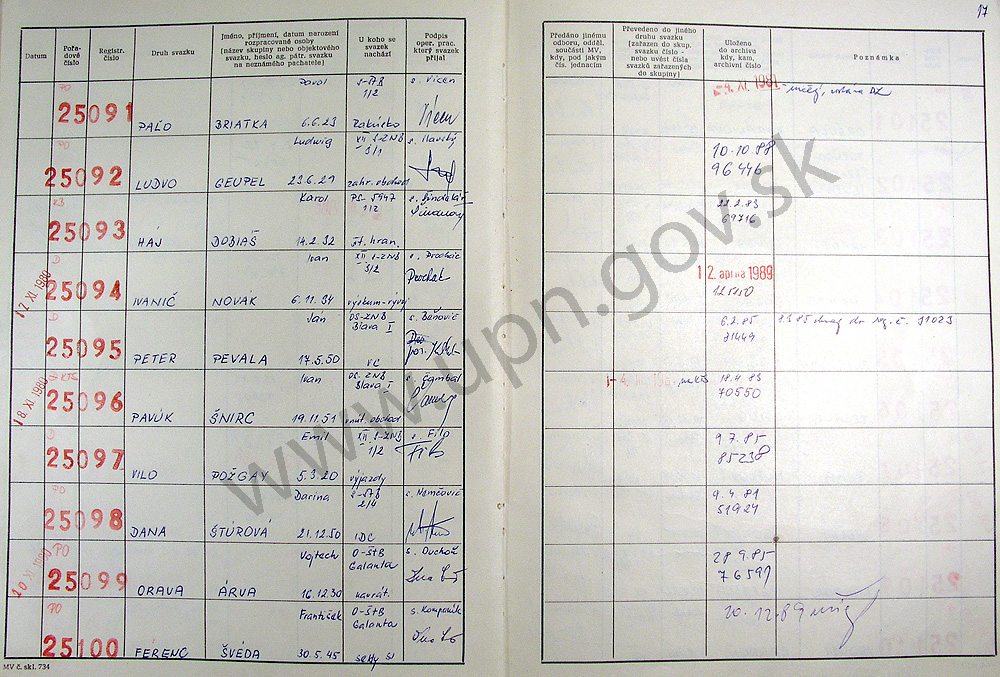 17
Datum
Pořa-
dové
číslo
Registr.
číslo
Druh svazku
Jméno, příjmení, datum narození
rozpracované osoby
(název skupiny nebo objektového
svazku, heslo ag. pátr. svazku
na neznámého pachatele)
U koho se
svazek
nachází
Podpis
oper. prac.
který svazek
přijal
Předáno jinému
odboru, odděl.
součásti MV,
kdy, pod jakým
čís. jednacím
Převedeno do jiného
druhu svazku
(zařazen do skup.
svazku číslo -
nebo uvést čísla
svazků zařazených
do skupiny)
Uloženo
do archivu
kdy, kam,
archivní číslo
Poznámka
PO
25091
PAĽO
Pavol
BRIATKA 6.6.23
S-ŠTB
1/2
Rakúsko
s. Vicen
4. XI. 1981
PO
25092
LUDVO
Ludwig
GEUPEL 23.6.21
XII S-ZNB
3/1
zahr. obchod
s. Slavský
10.10.88
96446
25093
HÁJ
Karol
DOBIÁŠ 14.2.32
PS-5947
1/2
št. hran.
22.2.83
69716
12. XI. 1980
D
25094
IVANIČ
Ivan
NOVÁK 6.11.34
XII S-ZNB
3/2
výskum-vývoj
12. apríla 1989
125150
D
25095
PETER
Ján
PEVALA 17.5.50
OS-ZNB
Blava I
VC
s. Baňovič
6.2.85
71449
18. XI. 1980
KTS
25096
PAVÚK
Ivan
ŠNIRC 19.11.51
OS-ZNB
Blava I
vnút. obchod
s. Čambal
18.4.83
70550
D
25097
VILO
Emil
POŽGAY 5.3.20
XII S-ZNB
1/2
výjazdy
s. Filo
9.7.85
85238
PO
25098
DANA
Darina
ŠTÚROVÁ 21.12.50
S-ŠTB
2/4
IDC
s. Nemčovič
9.4.81
51924
20. XI. 1980
PO
25099
ORAVA
Vojtech
ÁRVA 16.12.30
O-ŠTB
Galanta
navrát.
s. Duchoň
28.9.85
76591
PO
25100
FERENC
František
ŠVÉDA 30.5.45
O-ŠTB
Galanta
sekty SJ
20.12.89
MV č. skl. 734
www.upn.gov.sk